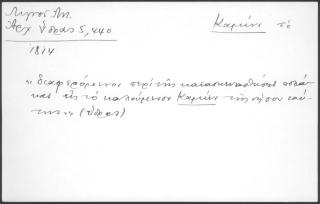 Λιγνός Αντ.
Αρχ. Ύδρας 5, 440
Καμίνι το
1814
« διαφερόμενοι περί της κατασκευασθείσης
και εις το καλούμενον Καμίνι της νήσου ταύ-
της » (Ύδρας)